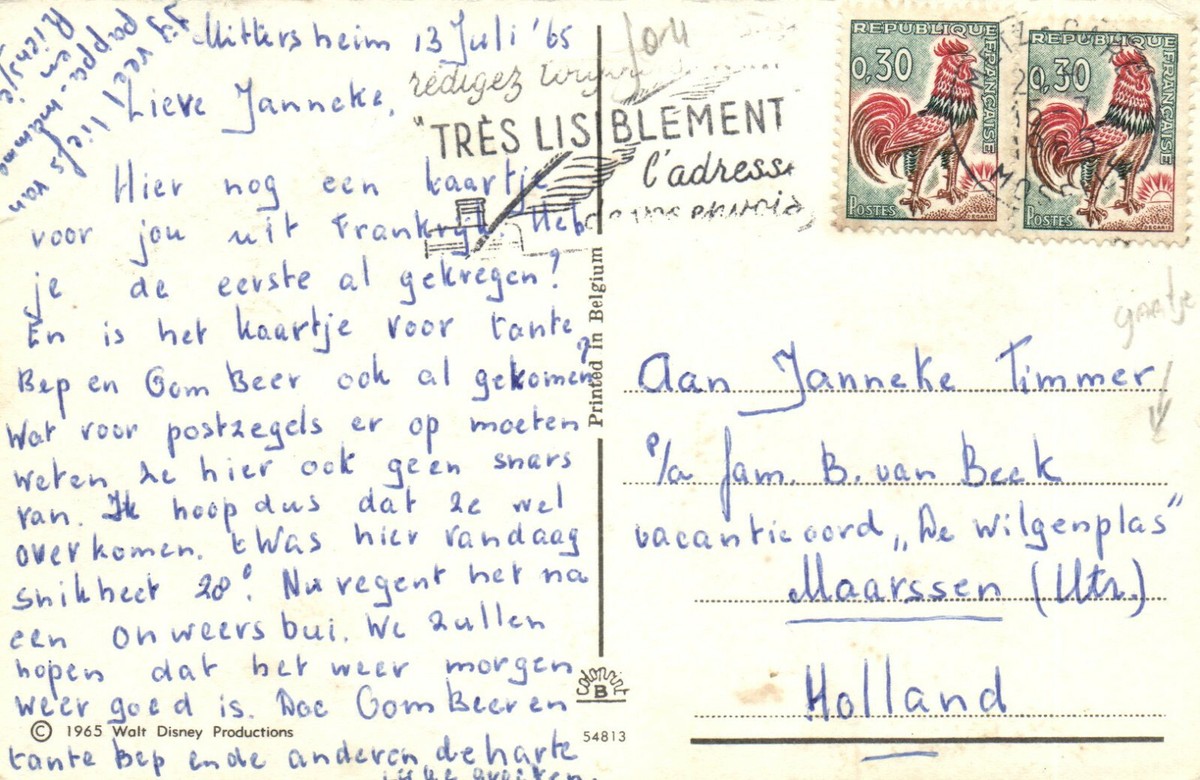 Mittersheim 13 Juli '65
Lieve Janneke,
Hier nog een kaartje
voor jou uit Frankrijk. Heb
je de eerste al gekregen?
En is het kaartje voor tante
Bep en Oom Beer ook al gekomen?
Wat voor postzegels er op moeten
weten ze hier ook geen snars
van. Ik hoop dus dat ze wel
overkomen. 't Was hier vandaag
snikheet 28°. Nu regent het na
een onweersbui. We zullen
hopen dat het weer morgen
weer goed is. Doe Oom Beer en
tante Bep en de anderen de harte
lijke groeten.
veel liefs van
pappa, mamma
en
rédigez
TRÈS LISIBLEMENT
l'adresse
de vos envois
RÉPUBLIQUE FRANÇAISE
0,30
POSTES
DECARIS
RÉPUBLIQUE FRANÇAISE
0,30
POSTES
DECARIS
MOSELLE
gaatje
Aan Janneke Timmer
p/a fam. B. van Beek
vacantieoord „De Wilgenplas"
Maarssen (Utr.)
Holland
Printed in Belgium
colorprint
B
© 1965 Walt Disney Productions
54813